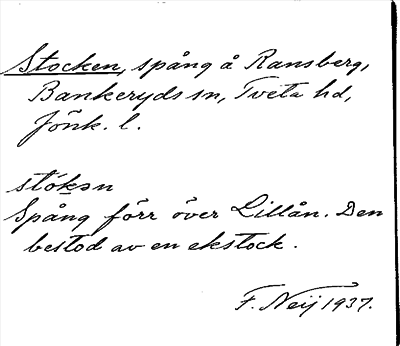 Stocken, spång å Ransberg,
Bankeryds sn, Tveta hd,
Jönk. l.
stókən
Spång förr över Lillån. Den
bestod av en ekstock.
F. Neij 1937.